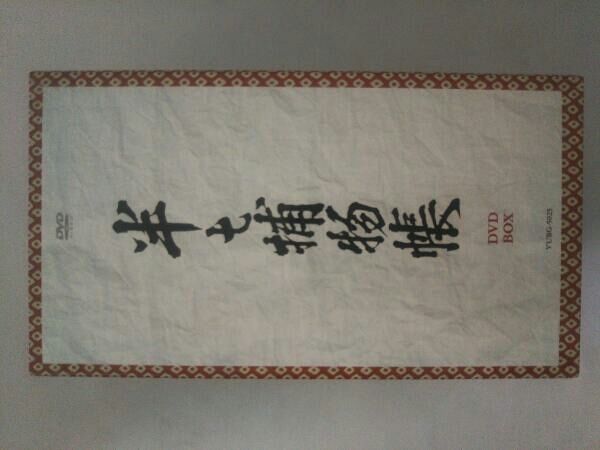 DVD
半七捕物帳
DVD
BOX
YUBG-5025